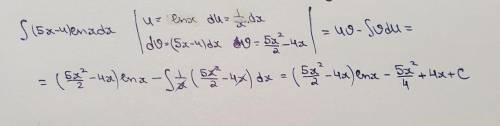 ∫(5x-4)lnxdx | u = lnx du = 1/x dx | = uv - ∫vdu =
dv = (5x-4)dx v = 5x²/2 - 4x
= (5x²/2 - 4x) lnx - ∫ 1/x (5x²/2 - 4x) dx = (5x²/2 - 4x) lnx - 5x²/4 + 4x + C